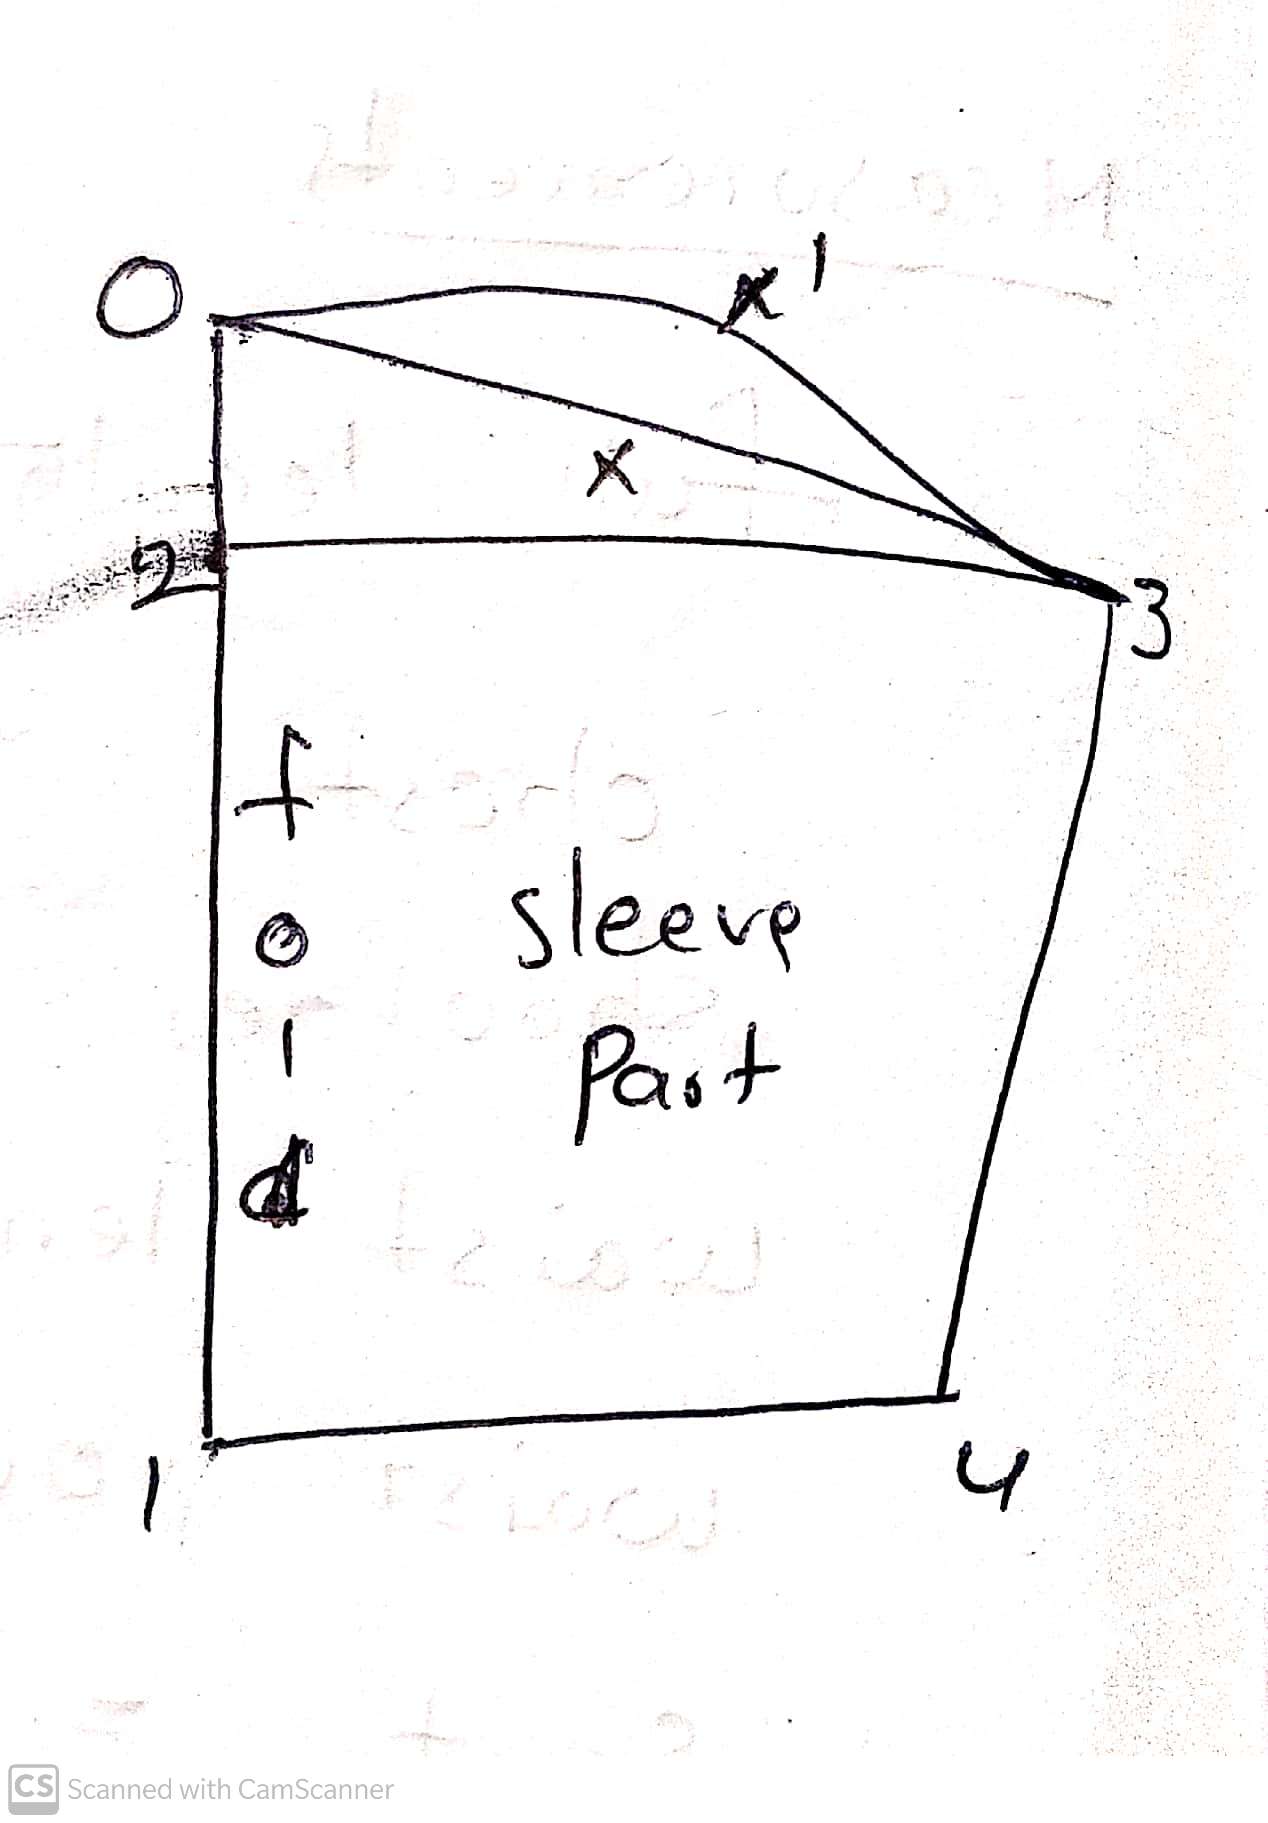 O
x'
x
2
3
f
o
l
d
Sleeve
Part
1
4
CS Scanned with CamScanner